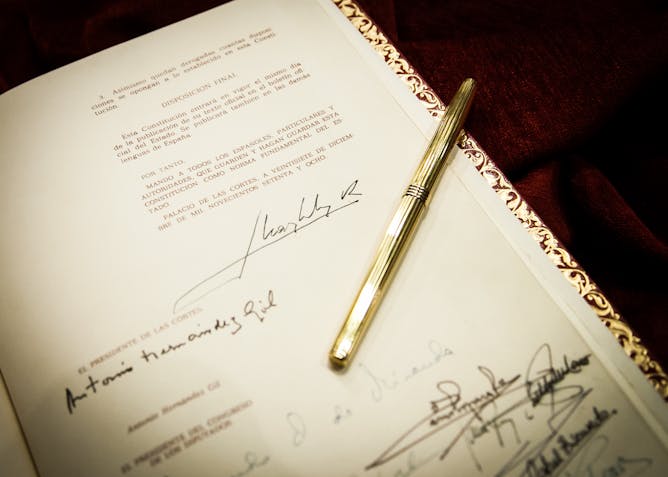 3. Asimismo quedan derogadas cuantas disposi
ciones se opongan a lo establecido en esta Consti
tución.
DISPOSICION FINAL
Esta Constitución entrará en vigor el mismo día
de la publicación de su texto oficial en el boletín ofi
cial del Estado. Se publicará también en las demás
lenguas de España.
POR TANTO,
MANDO A TODOS LOS ESPAÑOLES, PARTICULARES Y
AUTORIDADES, QUE GUARDEN Y HAGAN GUARDAR ESTA
CONSTITUCIÓN COMO NORMA FUNDAMENTAL DEL ES-
TADO.
PALACIO DE LAS CORTES, A VEINTISIETE DE DICIEM-
BRE DE MIL NOVECIENTOS SETENTA Y OCHO.
EL PRESIDENTE DE LAS CORTES
Antonio Hernández Gil
Antonio Hernández Gil
EL PRESIDENTE DEL CONGRESO
DE LOS DIPUTADOS